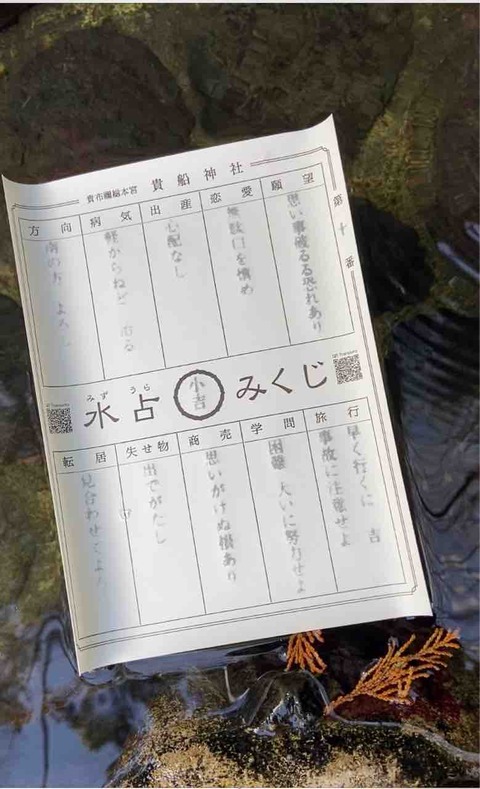 貴布禰總本宮 貴船神社
第十番
願望
思い事破るる恐れあり
恋愛
無駄口を慎め
出産
心配なし
病気
軽からねど 治る
方向
南の方 よろし
みず うら
水占 小吉 みくじ
旅行
早く行くに 吉
事故に注意せよ
学問
困難 大いに努力せよ
商売
思いがけぬ損あり
失せ物
出でがたし
転居
見合わせてよし